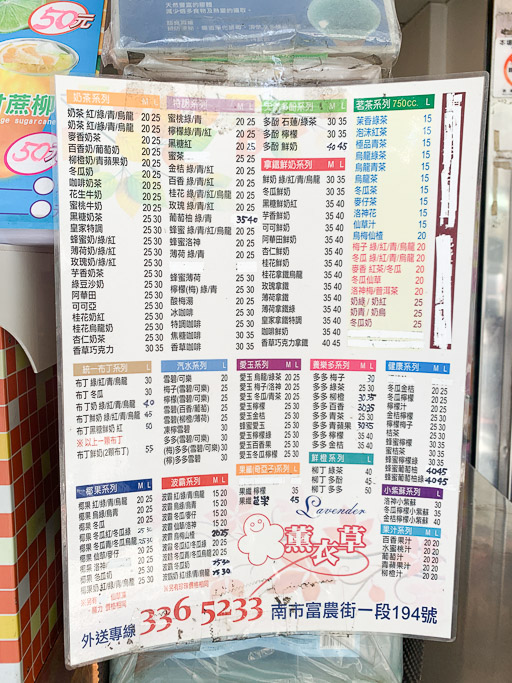 天然豐富的膠質
50元
甘蔗柳
50元
奶茶系列 M L
奶茶 紅/綠/青/烏龍 20 25
麥香奶茶 20 25
百香奶/葡萄奶 20 25
柳橙奶/青蘋果奶 20 25
冬瓜奶 20 25
咖啡奶茶 20 25
花生牛奶 20 25
蜜桃牛奶 20 25
黑糖奶茶 25 30
皇家特調 25 30
蜂蜜奶/綠/紅 25 30
薄荷奶/綠/紅 25 30
玫瑰奶/綠/紅 25 30
芋香奶茶 25 30
綠豆沙奶 25 30
阿華田 25 30
可可亞 25 30
桂花奶紅 25 30
桂花烏龍奶 25 30
杏仁奶茶 25 30
香草巧克力 30 35
特調系列 M L
蜜桃綠/青 20 25
檸檬綠/青/紅 20 25
黑糖紅 20 25
蜜茶 20 25
金桔 綠/青/紅
百香 綠/青/紅
桂花 綠/青/紅
玫瑰 綠/青/紅
葡萄柚 綠/青 35 40
蜂蜜 綠/青/紅/烏龍
蜂蜜洛神
薄荷 綠/青
蜂蜜薄荷 25 30
檸檬(梅) 綠/青 25 30
酸梅湯 20 25
冰咖啡 25 30
特調咖啡 25 30
焦糖咖啡 30 35
香草咖啡 30 35
多酚 石蓮/綠茶 30 35
多酚 檸檬 30 35
多酚 鮮奶 40 45
拿鐵鮮奶系列 M L
鮮奶 綠/紅/青/烏龍 30 35
冬瓜鮮奶 30 35
黑糖鮮奶 35 40
芋香鮮奶 35 40
可可鮮奶 35 40
阿華田鮮奶 35 40
杏仁鮮奶 35 40
桂花鮮奶 35 40
桂花拿鐵烏龍 35 40
玫瑰拿鐵 35 40
薄荷拿鐵 35 40
綠藻拿鐵 35 40
皇家拿鐵特調 35 40
咖啡鮮奶 35 40
香草巧克力拿鐵 40
茗茶系列 750cc. L
茉香綠茶 15
泡沫紅茶 15
極品青茶 15
烏龍綠茶 15
烏龍青茶 15
冬瓜茶 15
麥仔茶 15
洛神花 15
仙草汁 15
烏梅仙楂 20
梅子 綠/紅/青/烏龍 20
冬瓜 綠/紅/青/烏龍 20
麥香 紅茶/冬瓜 20
冬瓜仙草 20
洛神梅/普洱茶 20
奶綠/奶紅 25
奶青/奶烏 25
冬瓜奶 25
統一布丁系列 L
布丁 綠/紅/青/烏龍 30
布丁 冬瓜 30
布丁奶 綠/紅/青/烏龍 40
布丁鮮奶 綠/紅/青/烏龍 45
布丁黑糖鮮奶 紅 50
※以上一顆布丁
布丁鮮奶(2顆布丁) 55
汽水系列 L
雪碧/可樂 20
梅子(雪碧/可樂) 25
檸檬(雪碧/可樂) 30
雪碧(百香/葡萄) 25
雪碧(柳橙/薄荷) 25
凍檸雪碧 30
多多(雪碧/可樂) 30
(梅)多多(雪碧/可樂) 30
(檸)多多雪碧 30
愛玉系列 M L
愛玉 烏龍/綠茶 20 25
愛玉 梅子/洛神 20 25
愛玉 冬瓜/青茶 20 25
愛玉檸檬 25 30
愛玉金桔 25 30
蜂蜜愛玉 25 30
愛玉檸檬綠 25 30
愛玉百香果 25 30
愛玉冬瓜檸檬 25 30
養樂多系列 M L
多多 梅子 30
多多 綠茶 25 30
多多 柳橙 30 35
多多 百香 30 35
多多 青茶 25 30
多多 青蘋果 30 35
多多 檸檬 25 30
健康系列 L
冬瓜金桔
冬瓜檸檬
檸檬汁
金桔檸檬
檸檬梅子
桔茶
蜂蜜檸檬
蜜桔茶
蜂蜜檸檬綠
蜂蜜葡萄柚 40 45
蜂蜜葡萄柚綠 40 45
鮮橙系列 L
柳丁 綠茶 40
柳丁 多酚 45
柳丁 多多 50
果纖 檸檬 35
椰果系列 M L
椰果 紅/綠/青/烏龍 20 25
椰果 烏綠/烏青 20 25
椰果 冬瓜 20 25
椰果 冬瓜紅/冬瓜綠
椰果 冬瓜青/冬瓜烏龍
椰果 仙草/麥仔
椰果 洛神
椰果 冬瓜奶
椰果奶 紅/綠/青/烏龍
波霸系列 M L
波霸 紅/綠/青/烏龍 15 20
波霸 烏綠/烏青 15 20
波霸 冬瓜/麥仔 15 20
波霸 仙草/洛神 15 20
波霸 烏梅山楂 20 25
波霸 冬瓜紅/冬瓜綠 20 25
波霸 冬瓜青/冬瓜烏龍 20 25
波霸 冬瓜奶 25 30
波霸奶 紅/綠/青/烏龍 25 30
小紫蘇系列 L
洛神小紫蘇 30
冬瓜檸檬小紫蘇 35
金桔檸檬小紫蘇 40
果汁系列 M L
百香果汁 20 20
水蜜桃汁 20 20
葡萄果汁 20 20
青蘋果汁 20 20
柳橙汁 20 20
Lavender
薰衣草
外送專線 336 5233 南市富農街一段194號